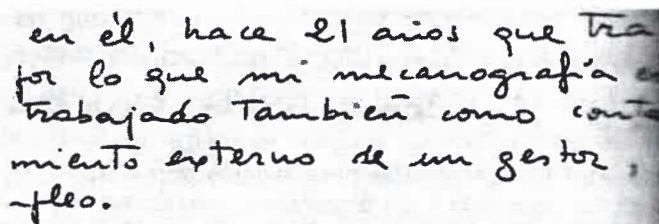 en él, hace 21 años que Tra
por lo que mi mecanografía e
Trabajado También como conta
miento externo de un gestor,
mpleo.